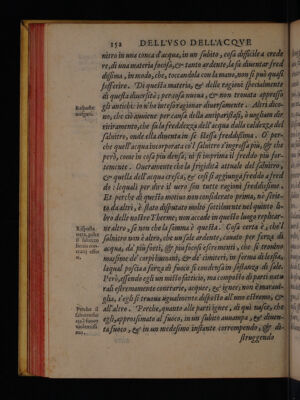 152 DELL'VSO DELL'ACQVE
nitro in una conca d'acqua, in un subito, cosa difficile a crede
re, di una materia focosa, & tanto ardente, la fa diuentar fred
dissima, in modo, che, toccandola con la mano, non si può quasi
sofferire. Di questa materia, & delle ragioni specialmente
di questa diuersità; percosa nuoua, & non trouata appresso
Risposta
gli antichi: io n'ho inteso ragionar diuersamente. Altri dico-
no, che ciò auuiene per causa dell'antiparistasi, ò uogliam dir
ritiramento, che fa la freddezza dell'acqua dalla caldezza del
salnitro, onde ella diuenta in se stessa freddissima. O per-
che quell'acqua incorporata co'l salnitro s'ingrossa più, & che
però, come in cosa più densa, ui s'imprima il freddo più for-
temente. Oueramente che la frigidità attuale del salnitro,
& quella dell'acqua cresca, & così si aggiunga freddo a fred
do: lequali per dire il uero son tutte ragioni freddissime.
Et perche di questo moriuo non considerato prima, ne scrit-
to da altri, è stato disputato molto sottilmente nel quinto li-
bro delle nostre Therme, non accade in questo luogo replicar-
Risposta
ne altro, se non che la somma è questa. Cosa certa è, che'l
salnitro non è altro, che un sale ardente, cauato per forza di
acqua, da più sorti, & più fuochi escrementi, che si trouino
massime de' corpi humani, & de' cimiteri, in forma de lessia,
lequal poscia a forza di fuoco si condensa in sustanza di sale.
Però, essendo egli un misto fattitio, ma composto di parti natu
rali estremamente contrarie, acquee, & ignee; non è maraui-
glia, s'egli si truoua ugualmente disposto all'uno estremo, &
Perche il
all'altro. Perche, quanto alle parti ignee, di quì nasce, che
egli, approssimato al fuoco, in un subito auuampa, & diuen-
ta fuoco, & in un medesimo instante corrompendo, & di-
struggendo